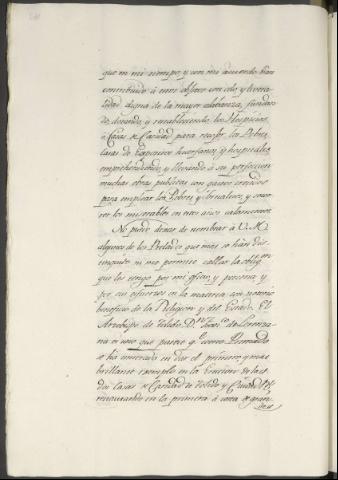 que en mi tiempo, y con mi acuerdo han
contribuido à este objeto con celo, y libera-
lidad digna de la mayor alabanza, fundan-
do, dotando, y restableciendo los Hospicios,
ò Casas de Caridad para recoger los Pobres,
Casas de Expositos, huerfanos, y hospitales,
emprehendiendo, y llevando à su perfeccion
muchas obras publicas con gastos crecidos
para emplear los Pobres, y Jornaleros, y socor-
rer los miserables en estos años calamitosos.
No puedo dejar de nombrar à V. M.
algunos de los Prelados que mas se han dis-
tinguido, ni me permite callar la oblig.on
que les tengo por mi oficio, y persona, y
por sus esfuerzos en la materia con notorio
beneficio de la Religion, y del Estado. El
Arzobispo de Toledo D.n Fran.co de Lorenza-
na es uno que parece q.e como Primado
se ha interesado en dar el primero, y mas
brillante exemplo en la Ereccion de las
dos Casas de Caridad de Toledo y Ciudad R.l
restaurando en la primera à costa de gran-
des